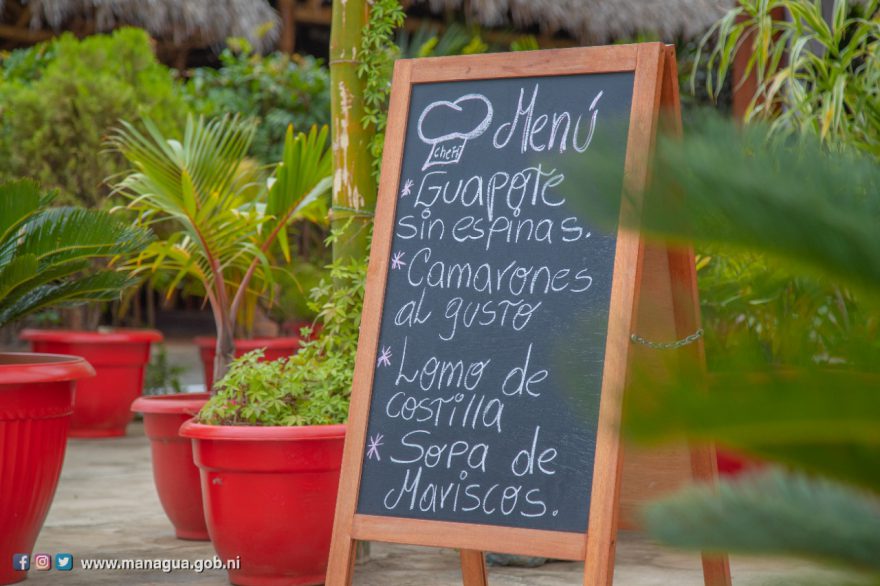 Menú
cheff
* Guapote
sin espinas.
* Camarones
al gusto
* Lomo de
costilla
* Sopa de
Mariscos.
www.managua.gob.ni